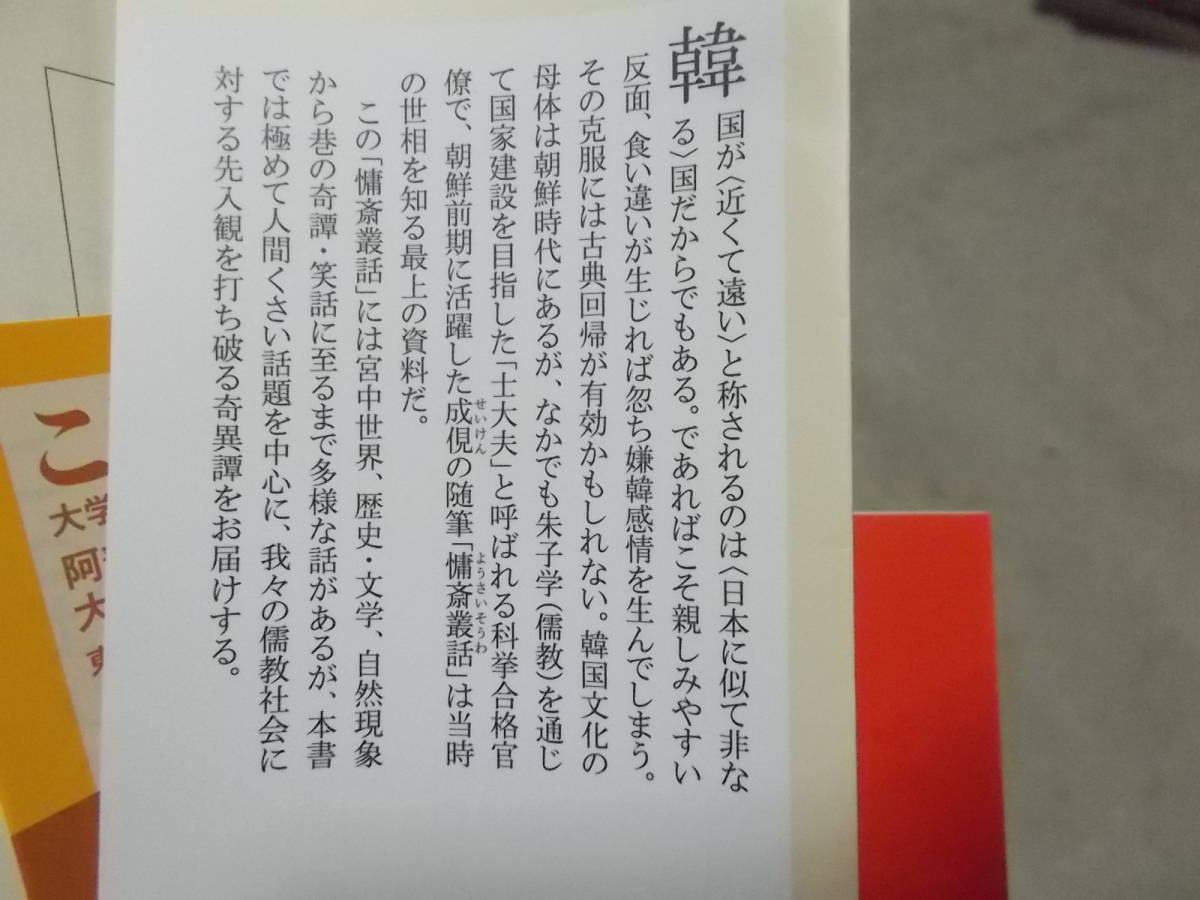 韓国が〈近くて遠い〉と称されるのは〈日本に似て非な
る〉国だからでもある。であればこそ親しみやすい
反面、食い違いが生じれば忽ち嫌韓感情を生んでしまう。
その克服には古典回帰が有効かもしれない。韓国文化の
母体は朝鮮時代にあるが、なかでも朱子学(儒教)を通じ
て国家建設を目指した「士大夫」と呼ばれる科挙合格官
僚で、朝鮮前期に活躍した成俔の随筆「慵斎叢話」は当時
せいけん
ようさいそうわ
の世相を知る最上の資料だ。
この「慵斎叢話」には宮中世界、歴史・文学、自然現象
から巷の奇譚・笑話に至るまで多様な話があるが、本書
では極めて人間くさい話題を中心に、我々の儒教社会に
対する先入観を打ち破る奇異譚をお届けする。
こ
大学
阿
大